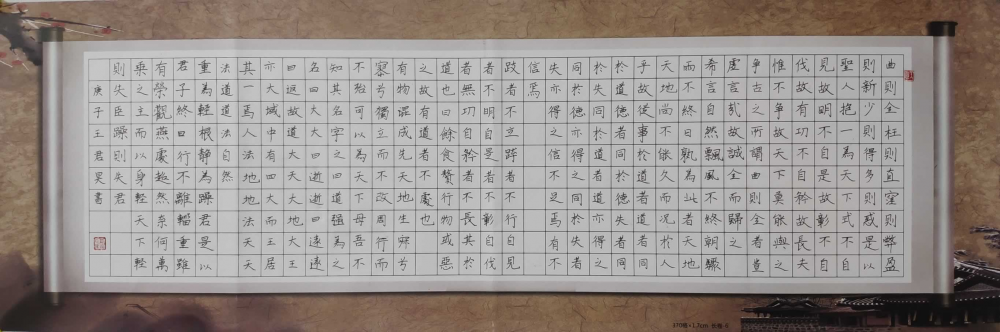 曲則全枉則直窪則弊盈
則新少則得多則惑是以
聖人抱一為天下式不自
見故明不自是故彰不自
伐故有功不自矜故長夫
惟不爭故天下莫能與之
爭古之所謂曲則全者豈
虛言哉故誠全而歸之
希言自然飄風不終朝驟
而不終日孰為此者天地
天地尚不能久而況於人
乎故從事於道者道者同
於道德者同於德失者同
於失同於道者道亦得之
同於德亦得之同於失者
失亦得之信不足焉有不
信焉
跂者不立跨者不行自見
者不明自是者不彰自伐
者無功自矜者不長其在
道也曰餘食贅行物或惡
之故有道者不處也
有物混成先天地生寂兮
寥兮獨立而不改周行而
不殆可以為天下母吾不
知其名字之曰道強為之
名曰大大曰逝逝曰遠遠
曰返故道大天大地大王
亦大域中有四大而王居
其一焉人法地地法天天
法道道法自然
重為輕根靜為躁君是以
君子終日行不離輜重雖
有榮觀燕處超然奈何萬
乘之主而以身輕天下輕
則失臣躁則失君
庚子王君昊書